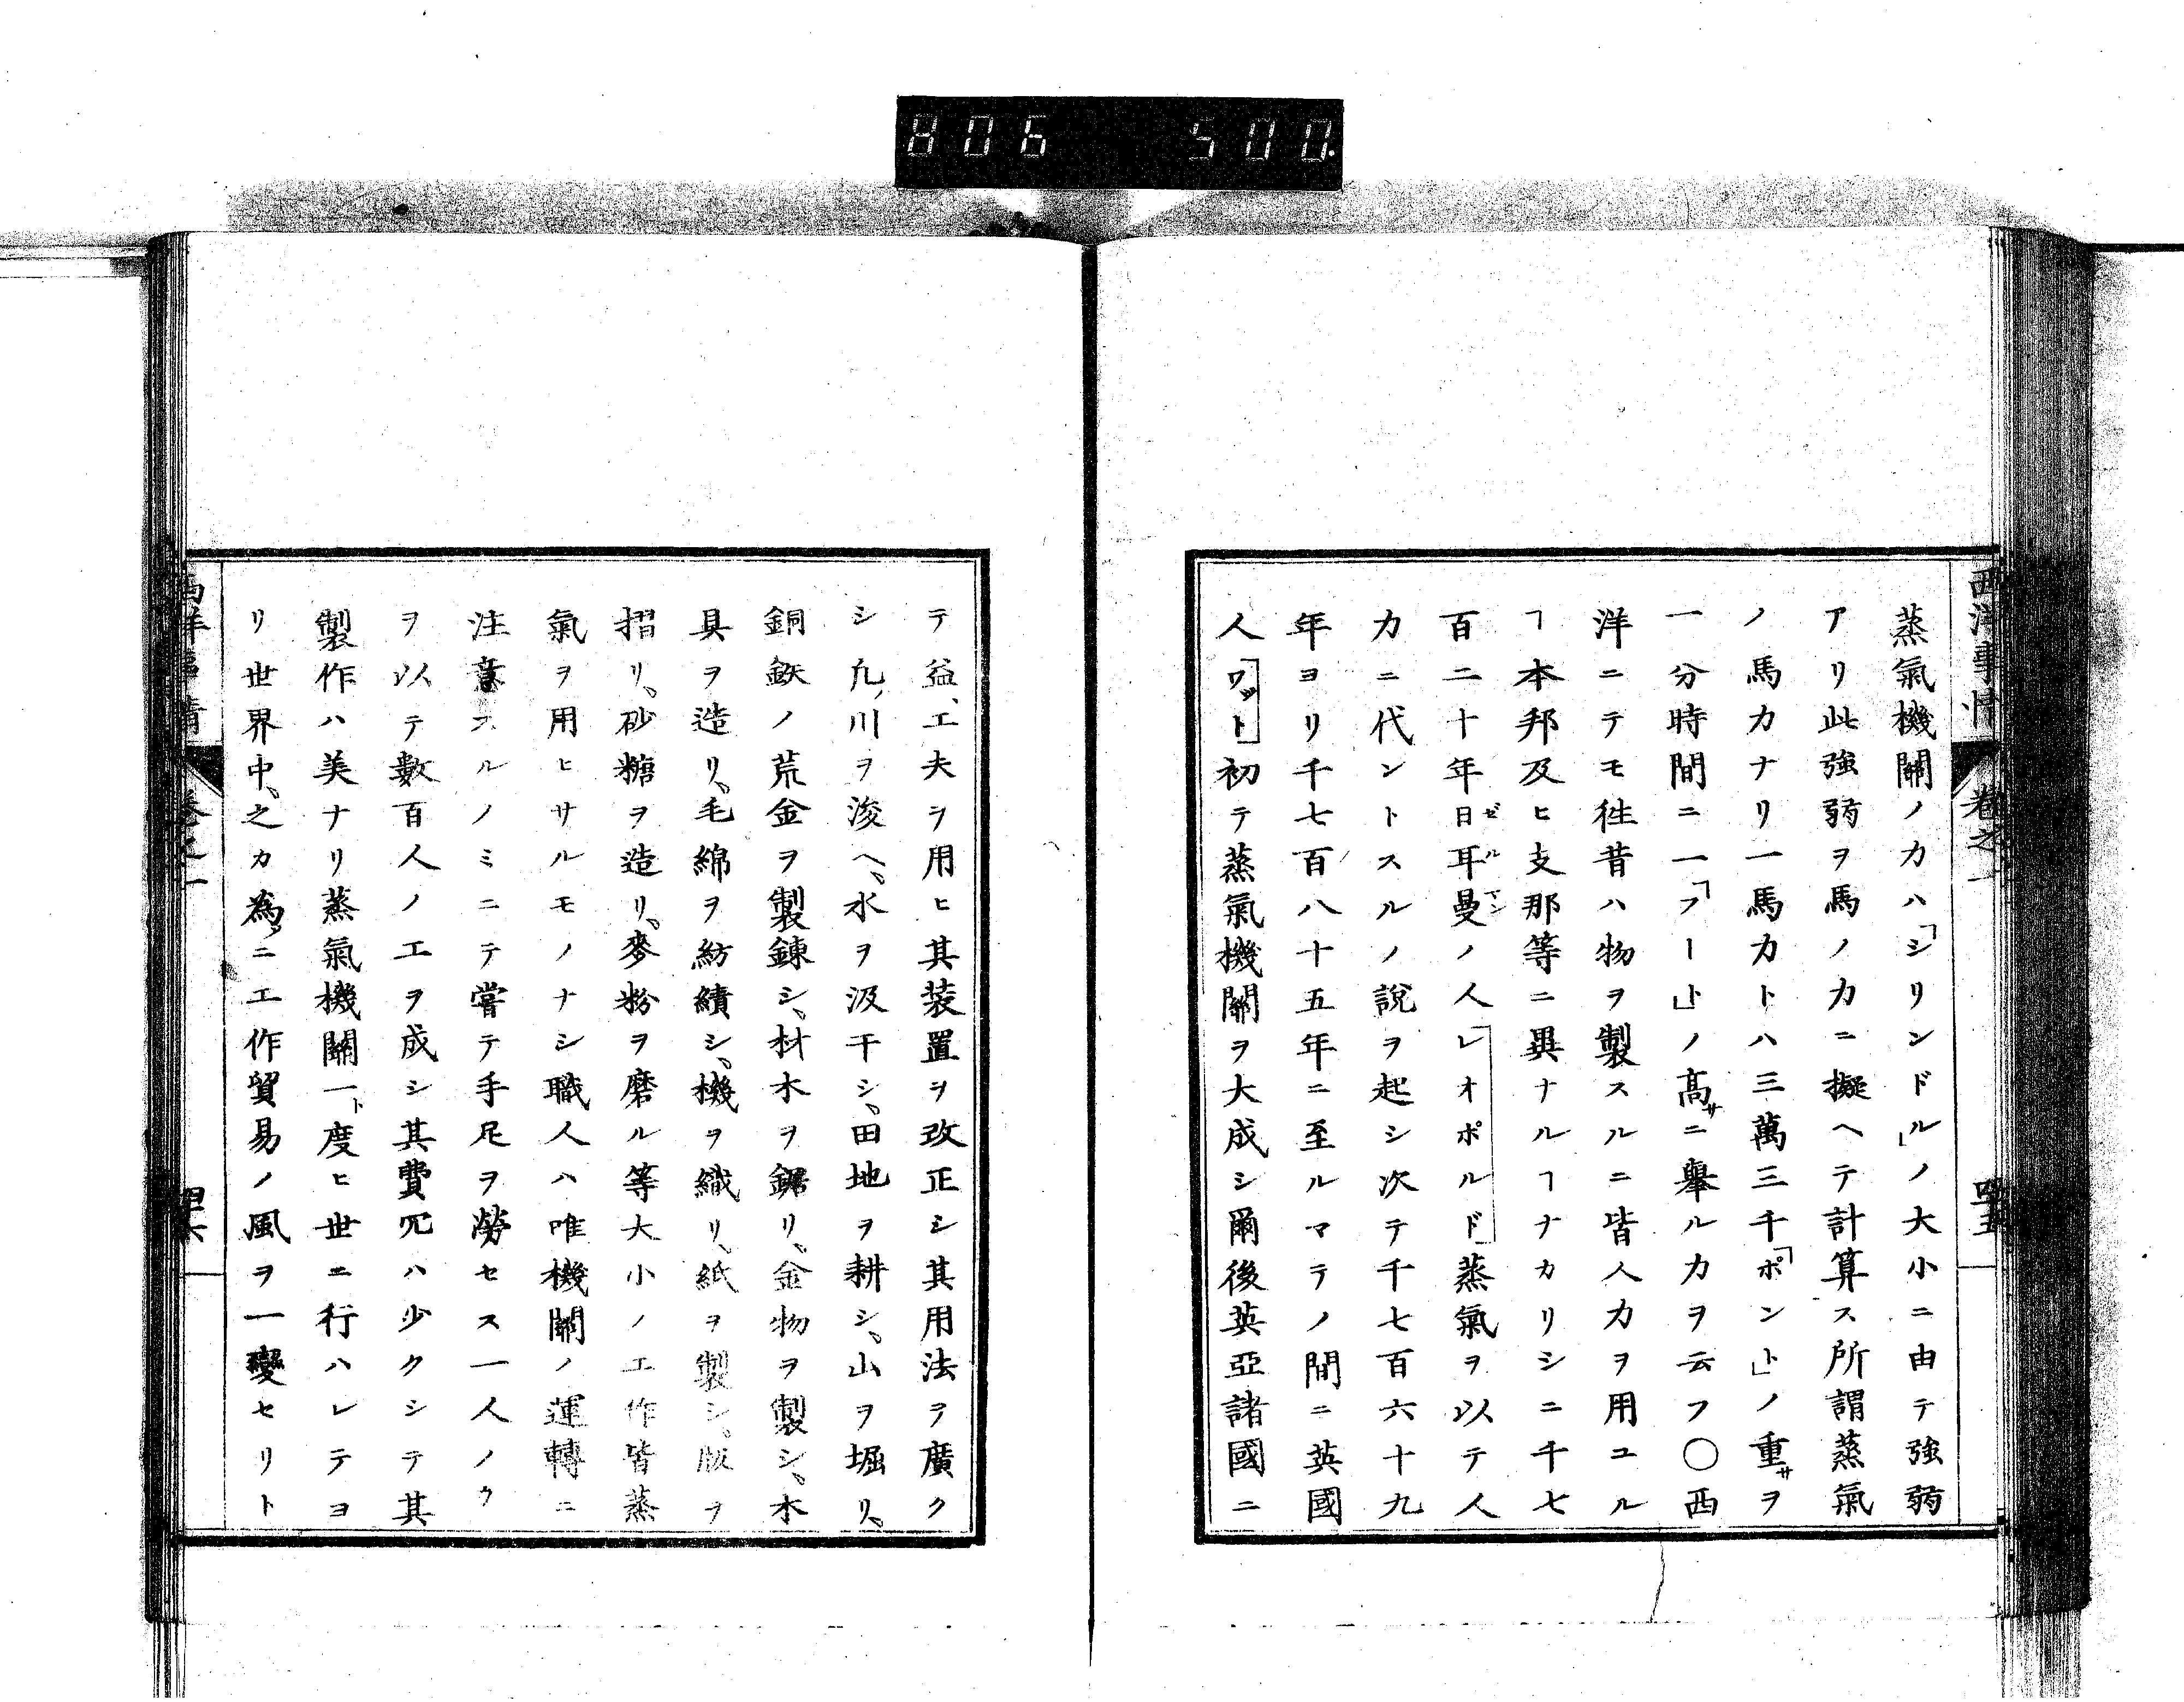 806 500.
西洋事情 卷之一 四五
蒸氣機關ノ力ハ「シリンドル」ノ大小ニ由テ強弱
アリ此強弱ヲ馬ノ力ニ擬ヘテ計算ス所謂蒸氣
ノ馬力ナリ一馬力トハ三萬三千「ポンド」ノ重サヲ
一分時間ニ一「フート」ノ高サニ擧ル力ヲ云フ〇西
洋ニテモ徃昔ハ物ヲ製スルニ皆人力ヲ用ユル
ヿ本邦及ヒ支那等ニ異ナルヿナカリシニ千七
百二十年日耳曼ゼルマンノ人「レオポルド」蒸氣ヲ以テ人
力ニ代ントスルノ説ヲ起シ次テ千七百六十九
年ヨリ千七百八十五年ニ至ルマテノ間ニ英國
人「ワット」初テ蒸氣機關ヲ大成シ爾後英亞諸國ニ
テ益、工夫ヲ用ヒ其装置ヲ改正シ其用法ヲ廣ク
シ凡、川ヲ浚ヘ、水ヲ汲干シ、田地ヲ耕シ、山ヲ堀リ、
銅鉄ノ荒金ヲ製錬シ、材木ヲ鋸リ、金物ヲ製シ、木
具ヲ造リ、毛綿ヲ紡績シ、機ヲ織リ、紙ヲ製シ、版ヲ
摺リ、砂糖ヲ造リ、麥粉ヲ磨ル等大小ノ工作皆蒸
氣ヲ用ヒサルモノナシ職人ハ唯機關ノ運轉ニ
注意スルノミニテ嘗テ手足ヲ勞セス一人ノ力
ヲ以テ數百人ノ工ヲ成シ其費冗ハ少クシテ其
製作ハ美ナリ蒸氣機關一ト度ヒ世ニ行ハレテヨ
リ世界中、之カ爲ニ工作貿易ノ風ヲ一變セリト
西洋事情 卷之一 四六